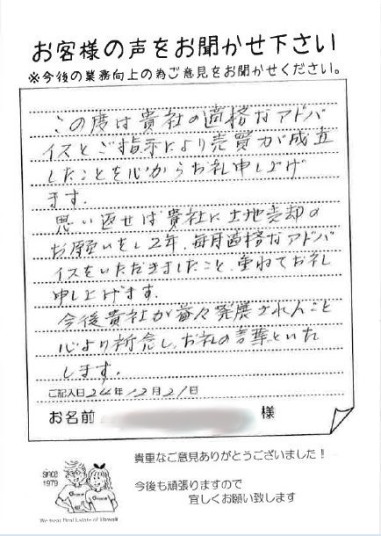 お客様の声をお聞かせ下さい
※今後の業務向上の為ご意見をお聞かせください。
この度は貴社の適格なアドバ
イスとご指示により売買が成立
したことを心からお礼申し上げ
ます。
思い返せば貴社に土地売却の
お願いをし2年、毎月適格なアドバ
イスをいただきましたこと、重ねてお礼
申し上げます。
今後貴社が益々発展されんこと
心より祈念し、お礼の言葉といた
します。
ご記入日24年12月21日
お名前 様
貴重なご意見ありがとうございました！
SINCE
1979
今後も頑張りますので
宜しくお願い致します